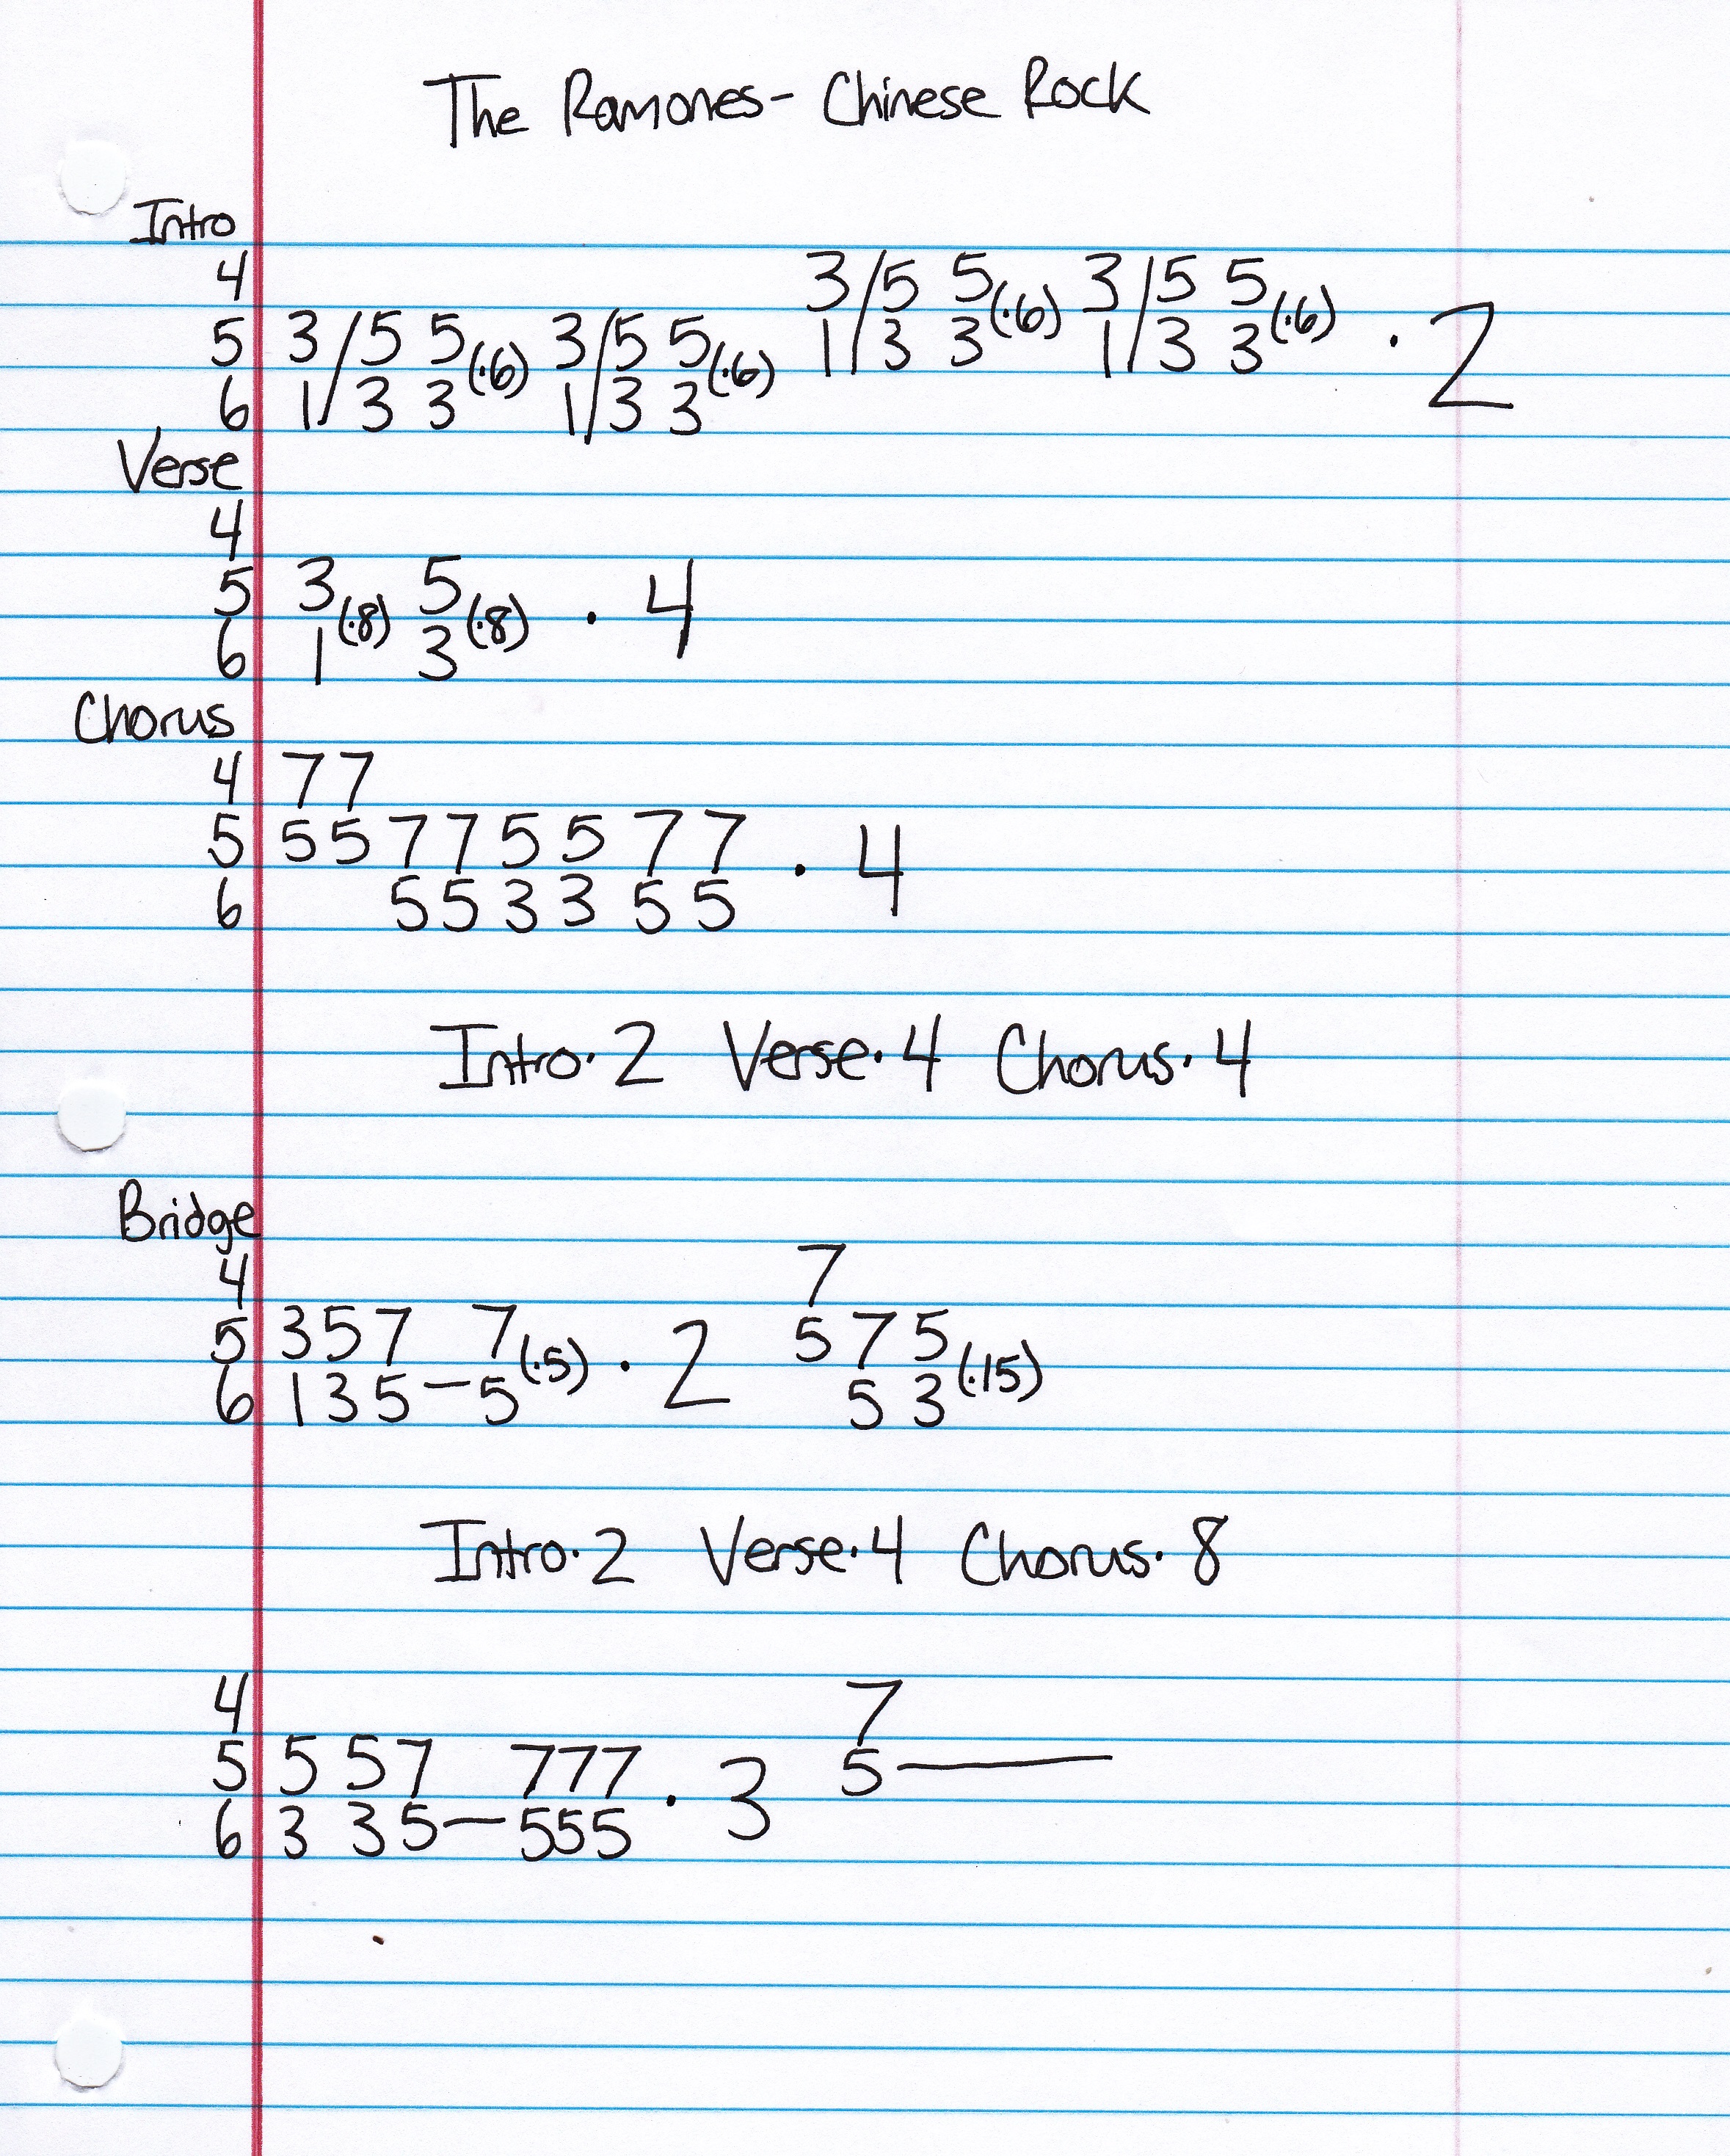 The Ramones- Chinese Rock
Intro
4 3/5 5 3/5 5
5 3/5 5(·6) 3/5 5(·6) 1/3 3(·6) 1/3 3(·6) · 2
6 1/3 3 1/3 3
Verse
4
5 3(·8) 5(·8) · 4
6 1 3
Chorus
4 77
5 55775577 · 4
6 553355
Intro·2 Verse·4 Chorus·4
Bridge
4 7
5 357 7(·5) · 2 575
6 135—5 53(·15)
Intro·2 Verse·4 Chorus·8
4 7
5 5 57 777 · 3 5—
6 3 35—555